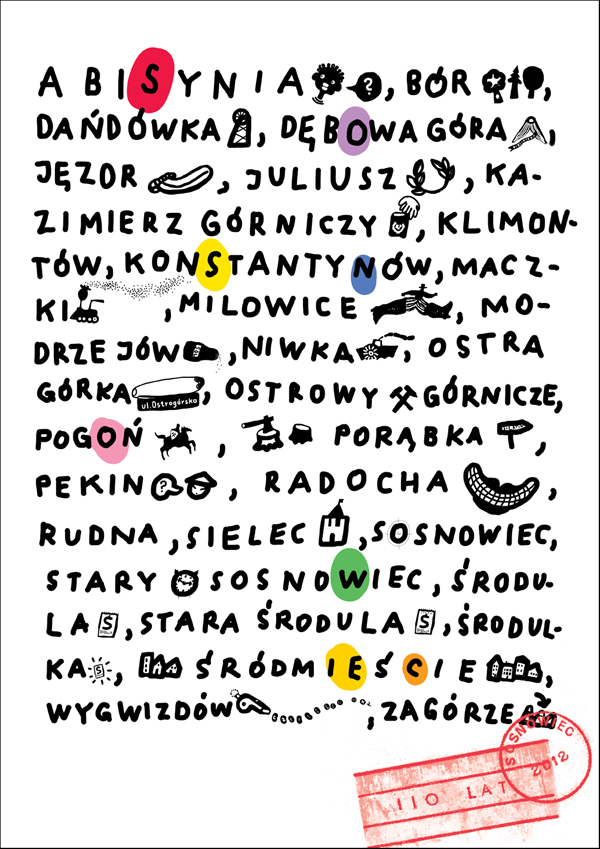 ABISYNIA ?, BÓR,
DAŃDÓWKA, DĘBOWA GÓRA,
JĘZOR, JULIUSZ, KA-
ZIMIERZ GÓRNICZY, KLIMON-
TÓW, KONSTANTYNÓW, MACZ-
KI, MILOWICE, MO-
DRZEJÓW, NIWKA, OSTRA
GÓRKA ul.Ostrogórska, OSTROWY GÓRNICZE,
POGOŃ, PORĄBKA,
PEKIN ?, RADOCHA,
RUDNA, SIELEC, SOSNOWIEC,
STARY SOSNOWIEC, ŚRODU-
LA Ś, STARA ŚRODULA Ś, ŚRODUL-
KA Ś, ŚRÓDMIEŚCIE,
WYGWIZDÓW, ZAGÓRZE
SOSNOWIEC
2012
110 LAT